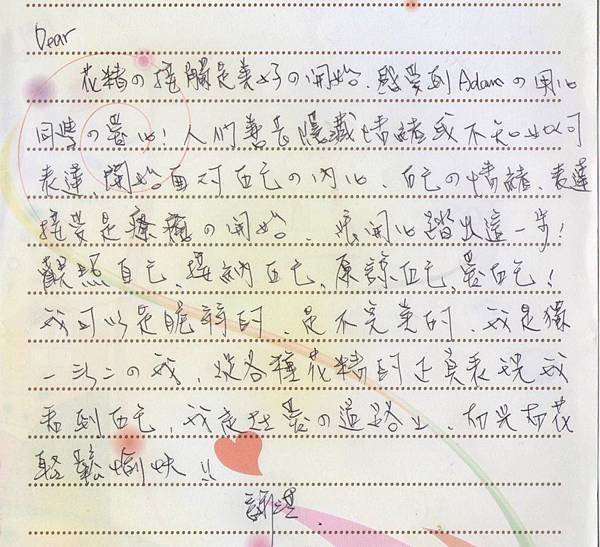 Dear
花精の接觸是美好の開始、感受到Adamの用心
同學の愛心!人們善於隱藏情緒或不知如何
表達、開始面對自己の內心、自己の情緒、表達
接受是療癒の開始、很開心踏出這一步!
觀照自己、接納自己、原諒自己、愛自己!
我可以是脆弱的、是不完美的、我是獨
一無二の我、從各種花精的正負表現我
看到自己、我走在愛の道路上、
輕鬆愉快!!
謝謝